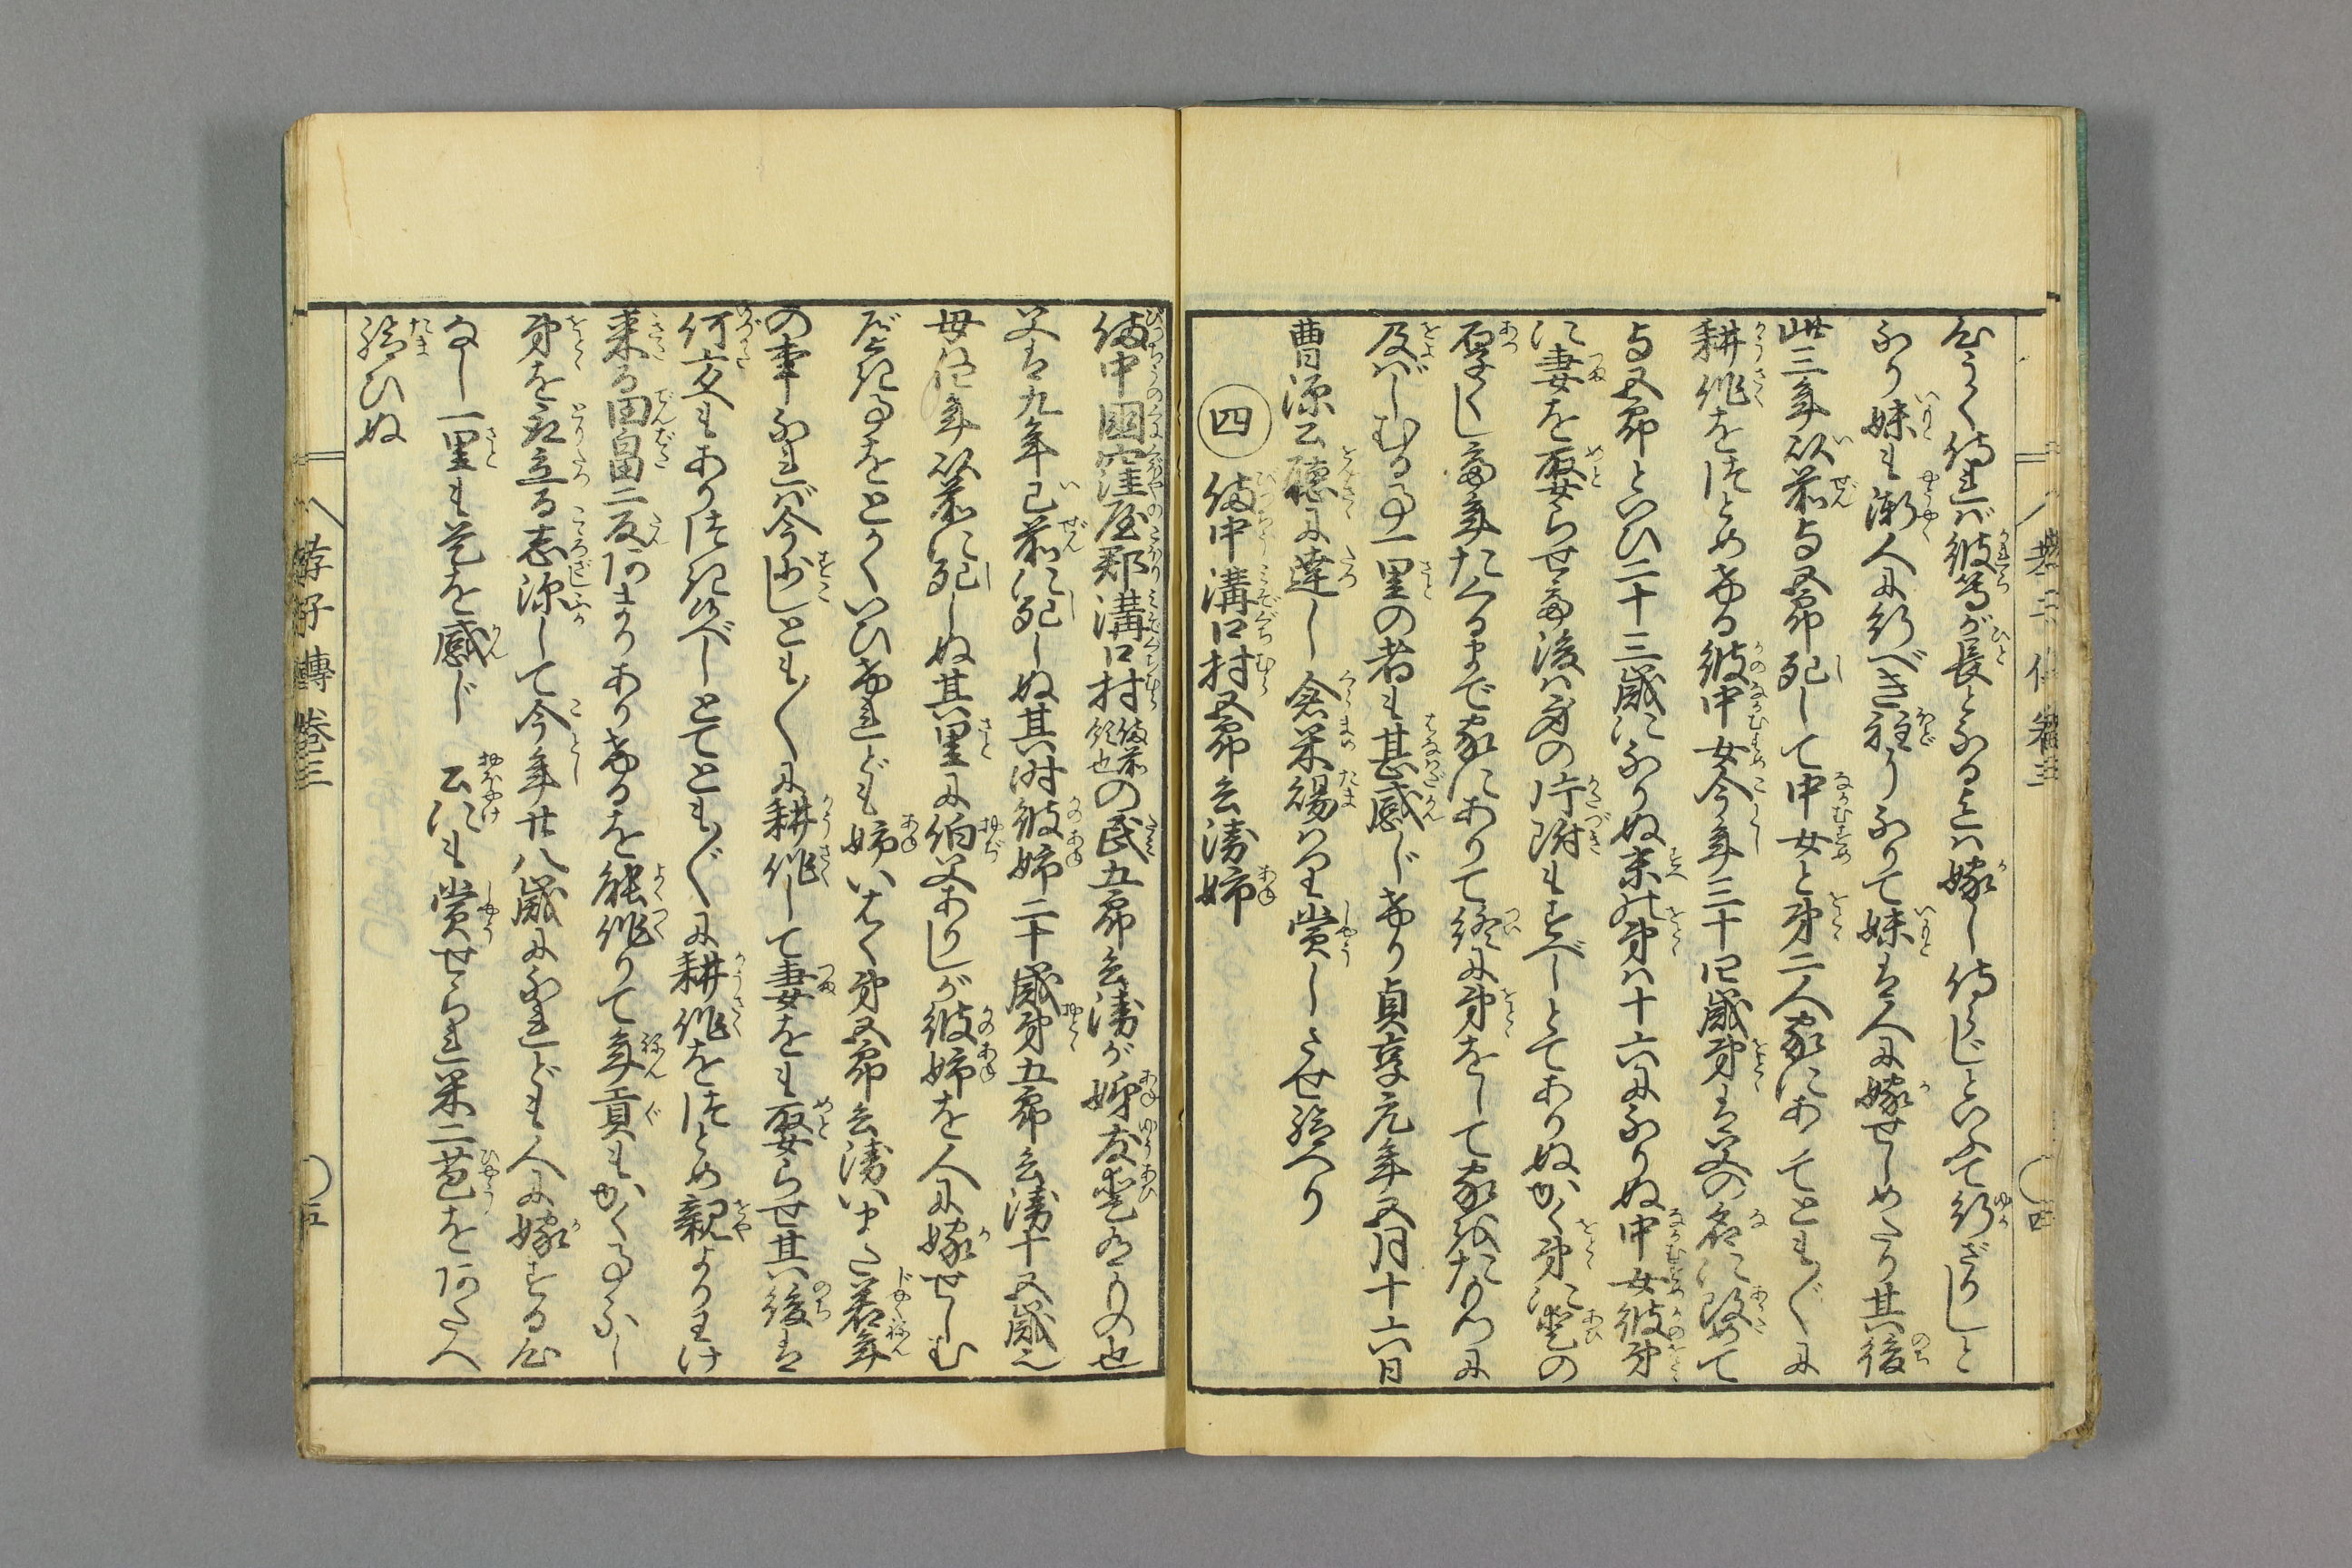 なく侍れば彼等が長となる迄は嫁し侍らじといふて行ざりしと
なり妹も漸人に行べき程うなりて妹をば人に嫁せしめたり其後
此三年以前与五郎死して中女と弟二人家にありてとも〴〵に
耕作をばつとめける彼中女今年三十四歳弟を父の名に改めて
与五郎といひ二十三歳になりぬ末の弟は十六になりぬ中女彼弟
に妻を娶らせ其後は身の片附もすべしとてありぬかく弟に愛の
厚くし齢年たくるまで家にありて終に弟をして家をたもつに
及ばしむる事一里の者も甚感じけり貞享元年五月十六日
曹源公聴に達し倉米賜はり賞しさせ給へり
四 備中溝口村五郎兵衛姉
備中国窪屋郡溝口村備前領也の民五郎兵衛が姉友愛有もの也
父は九年已前に死しぬ其時彼姉二十歳弟五郎兵衛十五歳也
母は年以前に死しぬ其里に伯父ありしが彼姉を人に嫁せしむ
べき事をとかくいひけれども姉いはく弟五郎兵衛いまだ若年
の事なれば今少しとも〳〵に耕作して妻をも娶らせ其後は
何方もありつき候べしとてとも〴〵に耕作をつとめ親よりうけ
来る田畠二反あまりありけるを能作りて年貢もかく事なし
弟を取立る志深して今年廿八歳になれども人に嫁する心
なし一里も是を感じ 公にも賞せられ米二苞をあたへ
給ひぬ
孝子傳 巻三
五